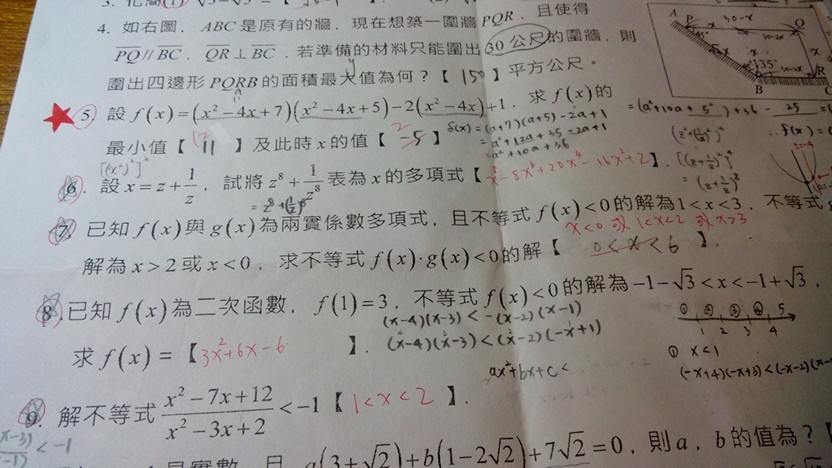 4. 如右圖，ABC是原有的牆，現在想築一圍牆PQR，且使得
PQ // BC，QR⊥BC．若準備的材料只能圍出30公尺的圍牆，則
圍出四邊形PQRB的面積最大值為何？【 150 】平方公尺。
5. 設 f(x)=(x²−4x+7)(x²−4x+5)−2(x²−4x)+1，求 f(x)的
最小值【 11 】及此時x的值【 2 】
f(x) = (a+7)(a+5)-2a+1
= a²+12a+35-2a+1
= a²+10a+36
6. 設 x=z+1/z，試將 z⁸+1/z⁸ 表為x的多項式【 x⁸-8x⁶+20x⁴-16x²+2 】.
7. 已知 f(x)與g(x)為兩實係數多項式，且不等式 f(x)<0的解為1<x<3，不等式
x<0 或 1<x<2 或 x>3
解為x>2或x<0，求不等式 f(x)·g(x)<0的解【 0<x<6 】.
8. 已知 f(x)為二次函數，f(1)=3，不等式 f(x)<0的解為−1−√3<x<−1+√3，
(x-4)(x-3)<-(x-2)(x-1)
求 f(x)=【 3x²+6x-6 】.
(x-4)(x-3)<(x-2)(-x+1)
ax²+bx+c<
1 2 3 4 5
① x<1
(-x+4)(-x+3)<(-x-2)
9. 解不等式 (x²−7x+12)/(x²−3x+2) <−1【 1<x<2 】.
a(3+√2)+b(1−2√2)+7√2=0，則a，b的值為？【